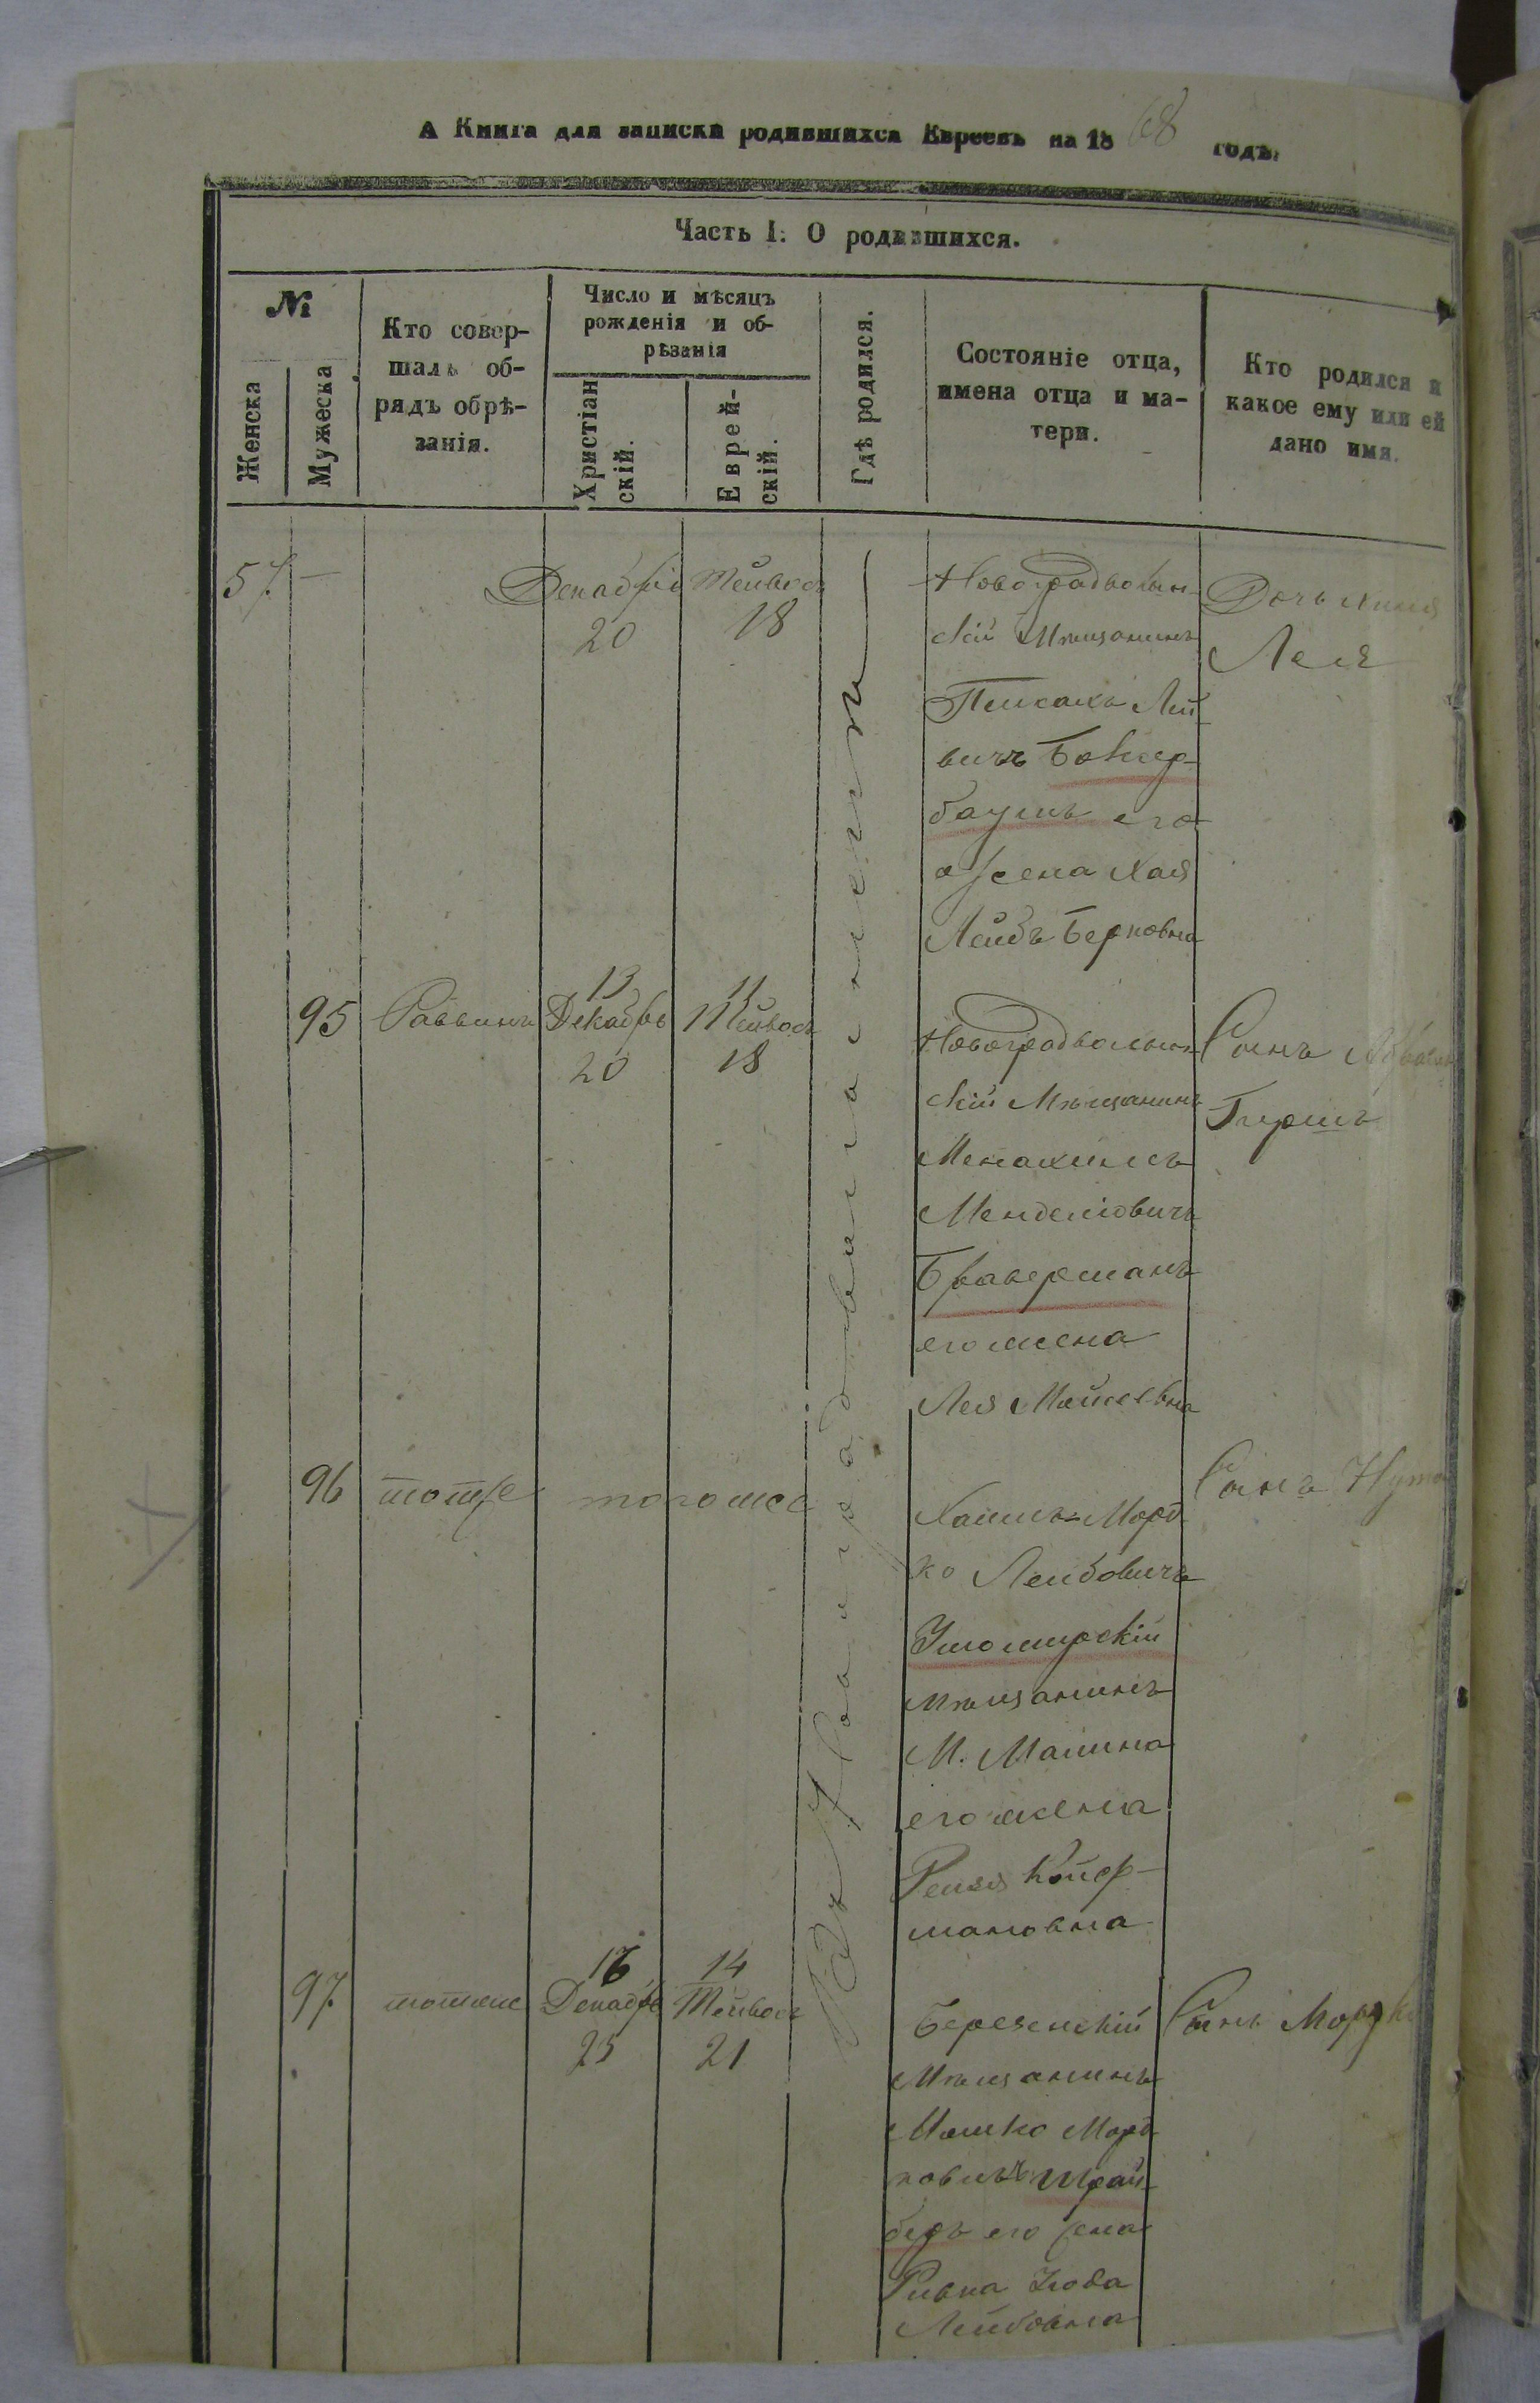 А Книга для записки родившихся Евреевъ на 1868 годъ.
Часть I. О родившихся.
№
Женска
Мужеска
Кто совер-
шалъ об-
рядъ обрѣ-
занія.
Число и мѣсяцъ
рожденія и об-
рѣзанія
Христіан
скій.
Еврей-
скій.
Гдѣ родился.
Состояніе отца,
имена отца и ма-
тери.
Кто родился и
какое ему или ей
дано имя.
57. —
Декабрь
20
Тейвосъ
18
Новоградволын-
скій Мѣщанинъ
Пейсахъ Лей
Бокser-
баумъ его
жена Хая
Лейбъ Берковна
Дочь
Лея
95
Раввинъ
13
Декабрь
20
11
Тейвосъ
18
Новоградволын-
скій Мѣщанинъ
Менахимъ
Менделіовичъ
Браверманъ
его жена
Лея Мойсеевна
Сынъ
Гиршъ
96
тотже
тогоже
Хаимъ Морд
ко Лейбовичъ
Ушомирскій
Мѣщанинъ
М. Малина
его жена
Рейзя
мановна
Сынъ
97.
тотже
16
Декабрь
23
14
Тейвосъ
21
Березенскій
Мѣщанинъ
Мошко Морд
ковичъ Шрай-
беръ его жена
Ривка
Лейбовна
Сынъ Мордко
Новоградволынскъ